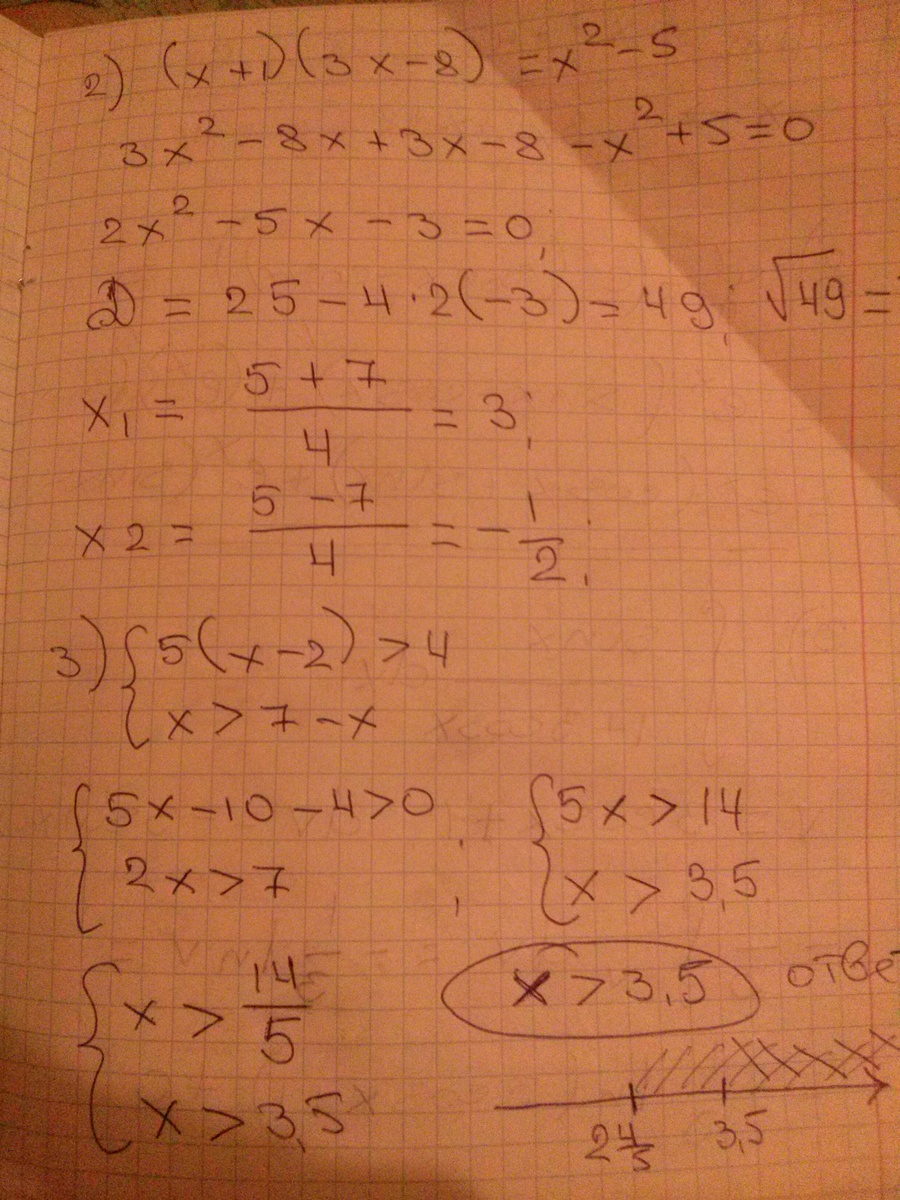 2) (x+1)(3x-8) = x² - 5
3x² - 8x + 3x - 8 - x² + 5 = 0
2x² - 5x - 3 = 0;
D = 25 - 4·2(-3) = 49; √49 =
x₁ = (5 + 7)/4 = 3;
x2 = (5 - 7)/4 = -1/2;
3) { 5(x-2) > 4
x > 7 - x
{ 5x - 10 - 4 > 0 ; { 5x > 14
2x > 7 x > 3,5
{ x > 14/5
x > 3,5
x > 3,5 отве
2 4/5 3,5